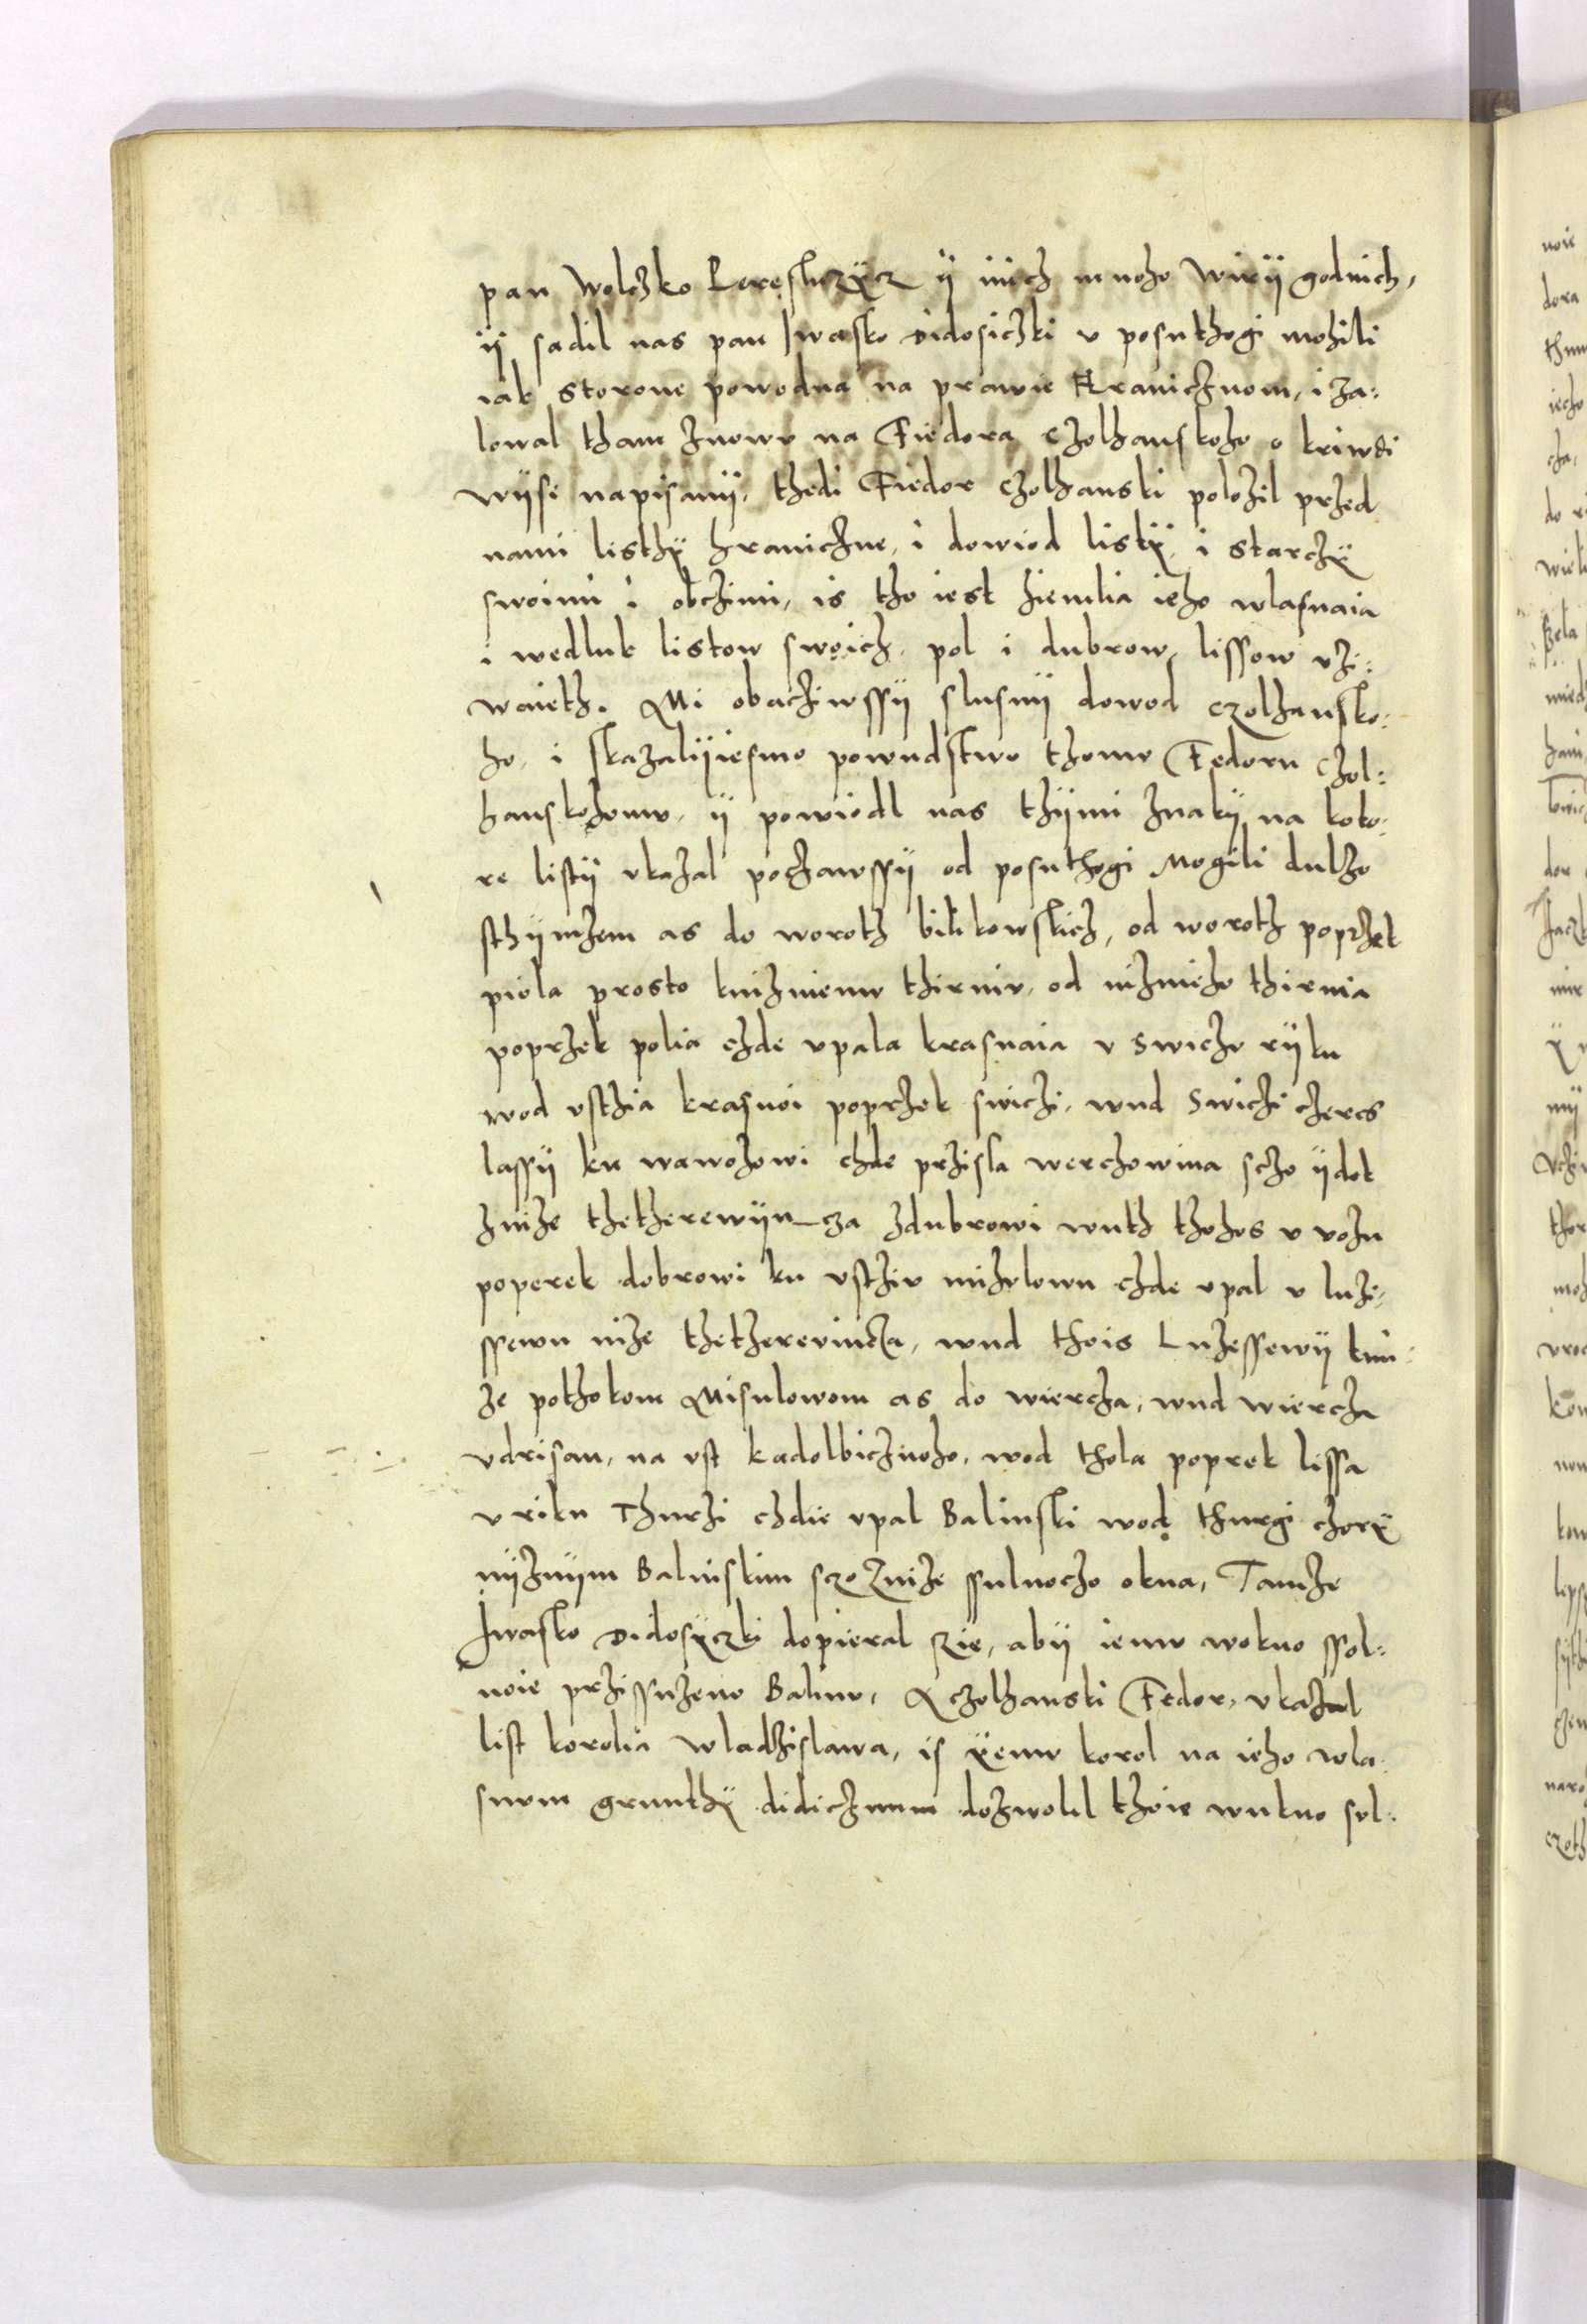 pan Wolczko Leręsliczÿcz ÿ inich mnoho Wirÿ godnich,
ÿ sadil nas pan Iwasko Didosiczki v posnthogi mohili
iak storone powodna na prawie Hranicznom, i za=
lowal tham znowv na Fiedora Czolhanskoho o kriwdi
wÿse napisanÿ, thedi Fiedor Czolhanski polozil przed
nami listhÿ hraniczne, i dowiod listÿ, i starczÿ
swoimi i obczimi, is tho iest ziemlia ieho wlasnaia
i wedluk listow swoich, pol i dubrow, lissow vzi=
waieth. Mi obacziwssÿ slusnÿ dowod czolhansko=
ho, i skazalÿiesmo powudstwo thomv Fedoru Czol=
hanskohomv, ÿ powiodl nas thÿmi znakÿ na koto=
re listÿ vkazal poczawssÿ od posnthogi Mogili dulho
sthÿmhem as do woroth bilikowskich, od woroth poprzek
piola prosto knizniemv thirniv, od niznieho thirnia
poprzek polia chde vpala krasnaia v Swicho rÿku
wod vsthia krasnoi poprzek swichi, wud Swichi czeres
lassÿ ku wawozowi chde przisla werchowina scho ÿdet
znize thetherewÿn-cza zdubrowi wuth thohos v vozu
poperek dobrowi ku vsthiv mihvlowu chde vpal v luze,
ssewu nize thetherevincza, wud thois Luzessowÿ kni=
ze pothokom Misulowom as do wiercha, wud wiercha
vdrisan, na vst kadolbicznoho, wod thola poprek lissa
v riku Thurzi chdie vpal Balinski wod thurgi chorÿ
nÿznÿm Balinskim sczo znize ssulnocho okna, Tamze
Iwasko Didosÿczki dopieral szie, abÿ iemv wokno ssol=
noie przissuzeno Balino, A czolhanski Fedor, vkazal
list korolia wladzislawa, is ÿemv korol na ieho wla
snom grunthÿ didicznum dozwolil thoie wukno sol=